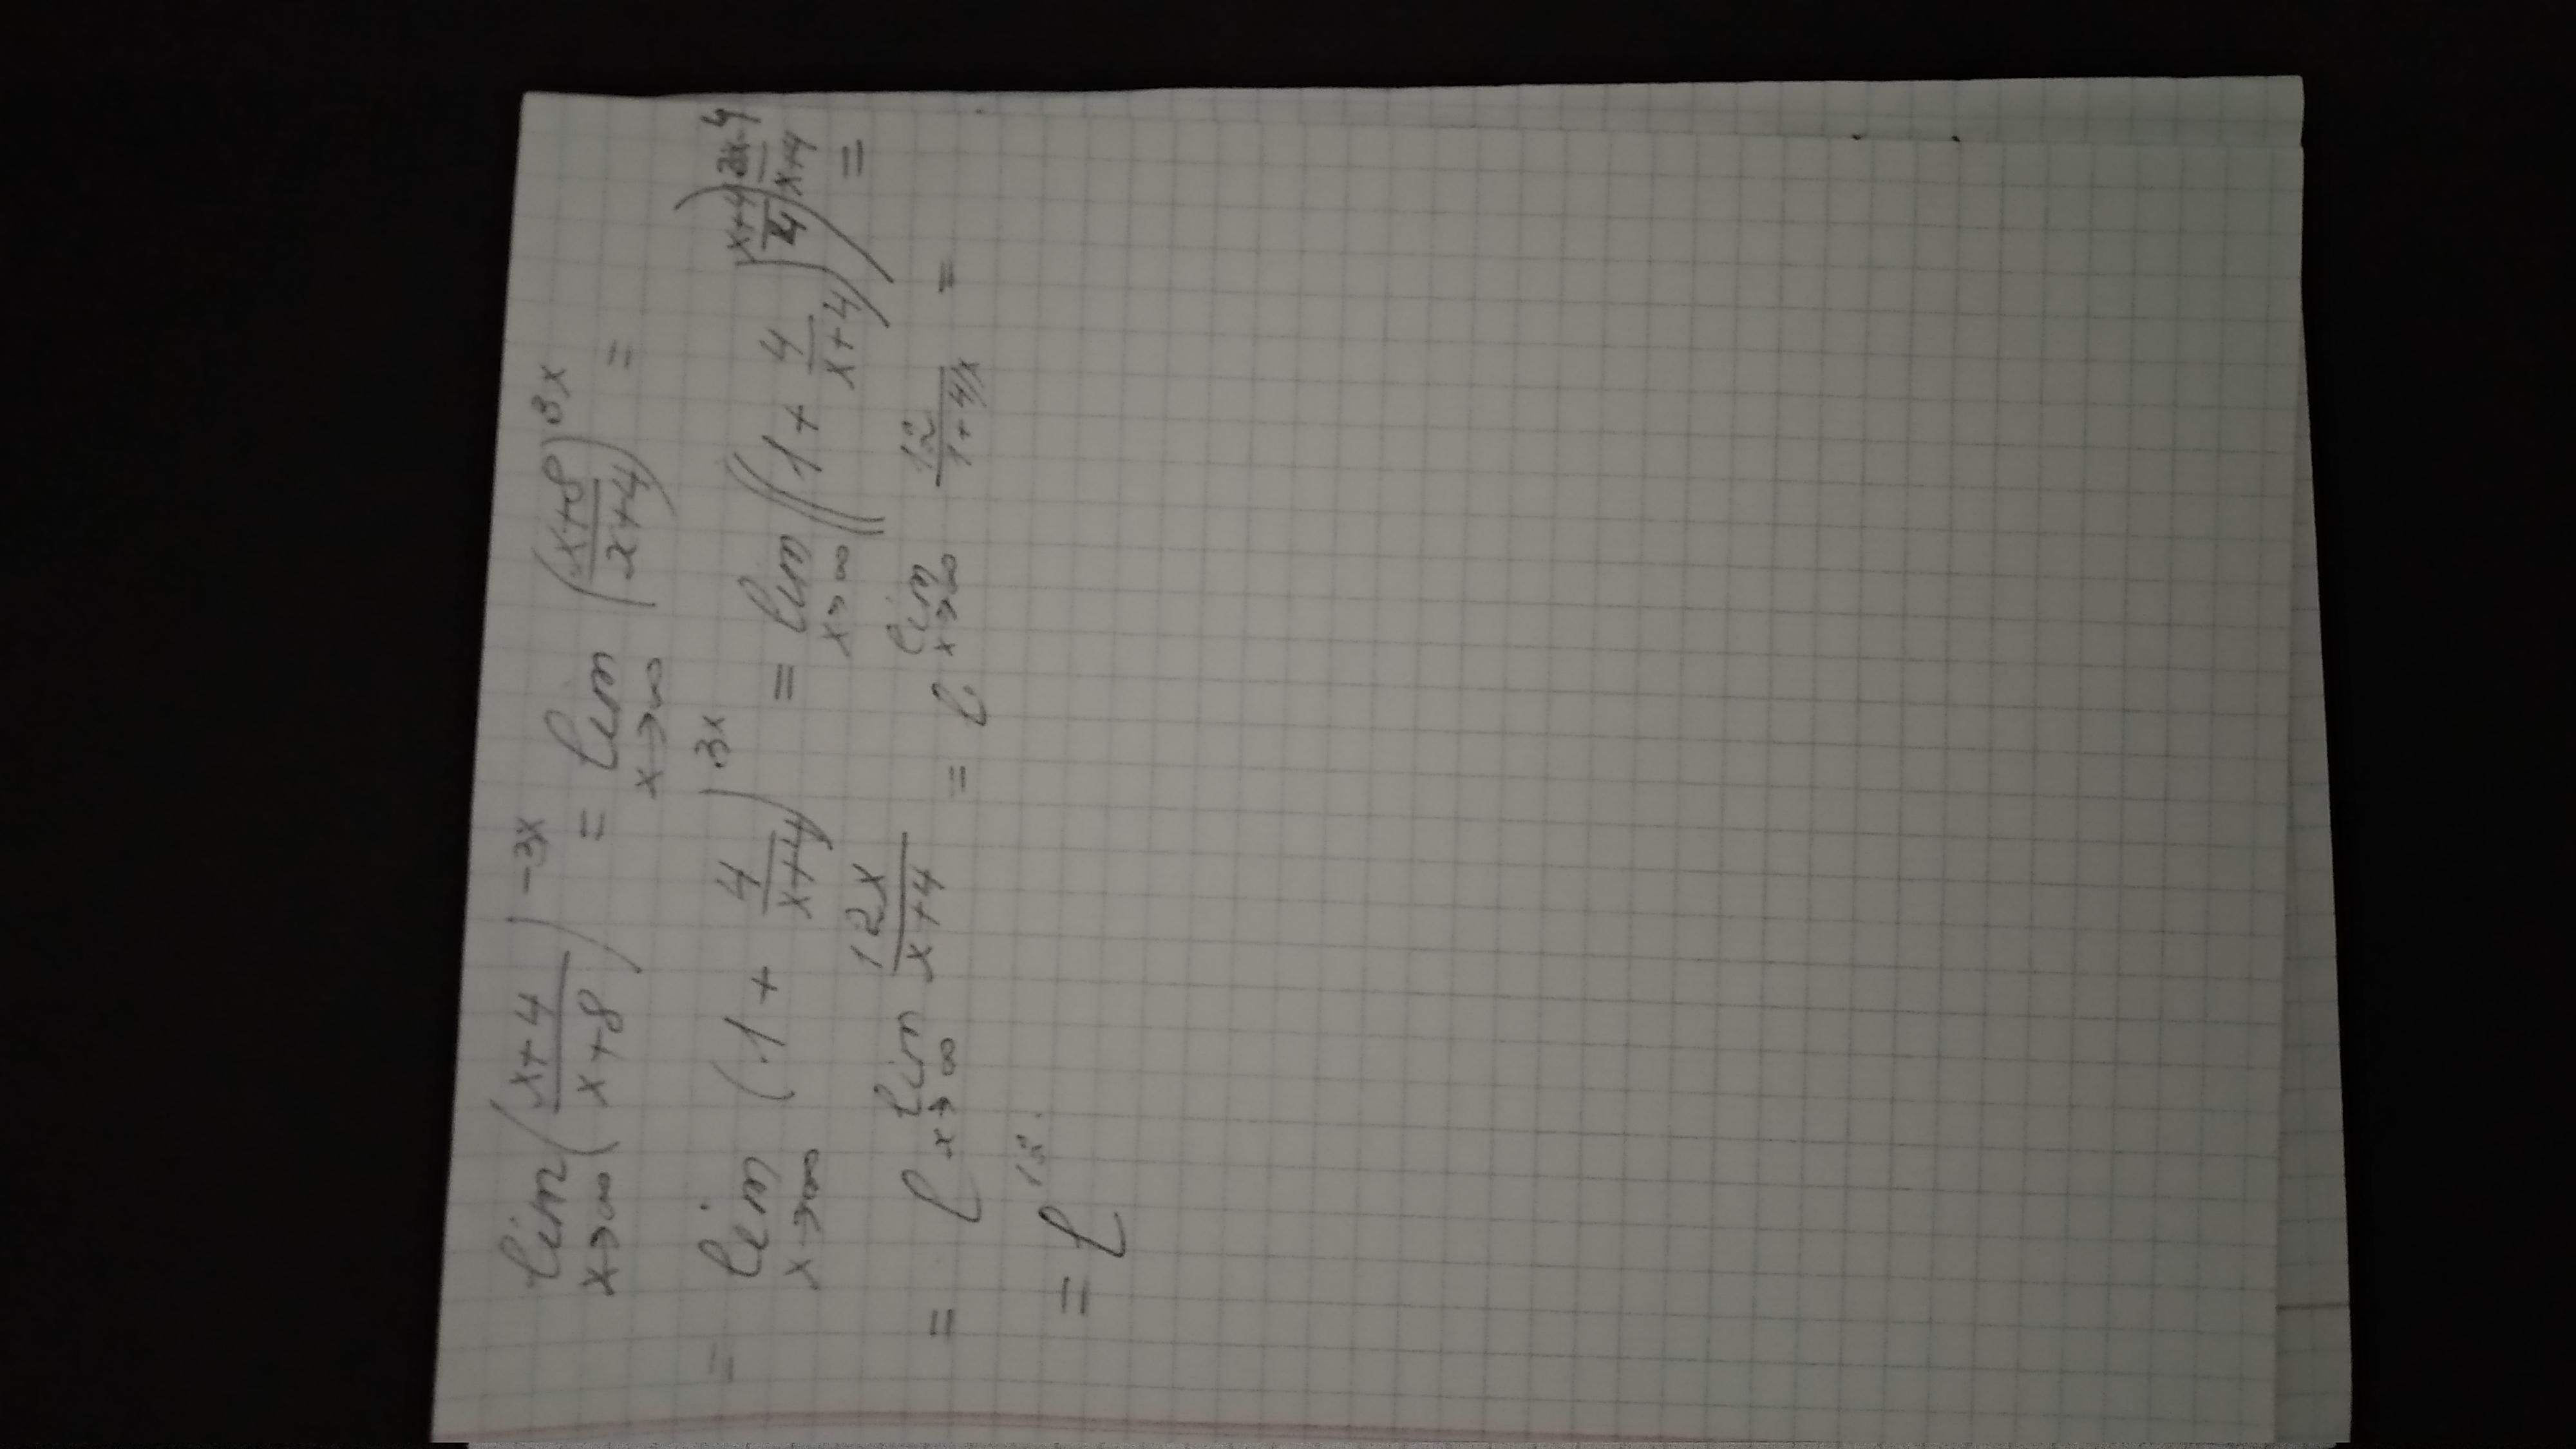 lim x→∞ ((x+4)/(x+8))^(-3x) = lim x→∞ ((x+8)/(x+4))^(3x) =
= lim x→∞ (1 + 4/(x+4))^(3x) = lim x→∞ ((1 + 4/(x+4))^((x+4)/4))^((3x·4)/(x+4)) =
= e^(lim x→∞ 12x/(x+4)) = e^(lim x→∞ 12/(1+4/x)) =
= e^12.